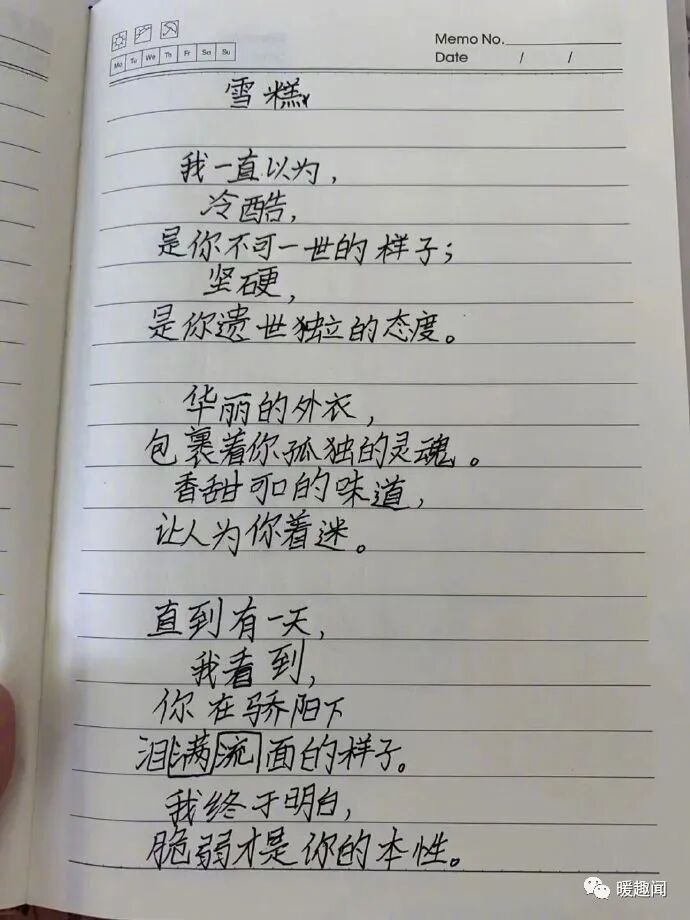 Memo No.
Mo Tu We Th Fr Sa Su
Date / /
雪糕
我一直以为，
冷酷，
是你不可一世的样子；
坚硬，
是你遗世独立的态度。
华丽的外衣，
包裹着你孤独的灵魂。
香甜可口的味道，
让人为你着迷。
直到有一天，
我看到，
你在骄阳下
泪满流面的样子。
我终于明白，
脆弱才是你的本性。
暖趣闻